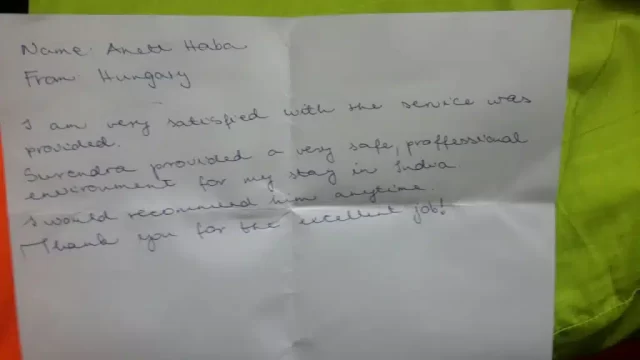 Name: Anett Haba
From: Hungary
I am very satisfied with the service was
provided.
Surendra provided a very safe, proffessional
environment for my stay in India
I would recommend him anytime.
Thank you for the excellent job!